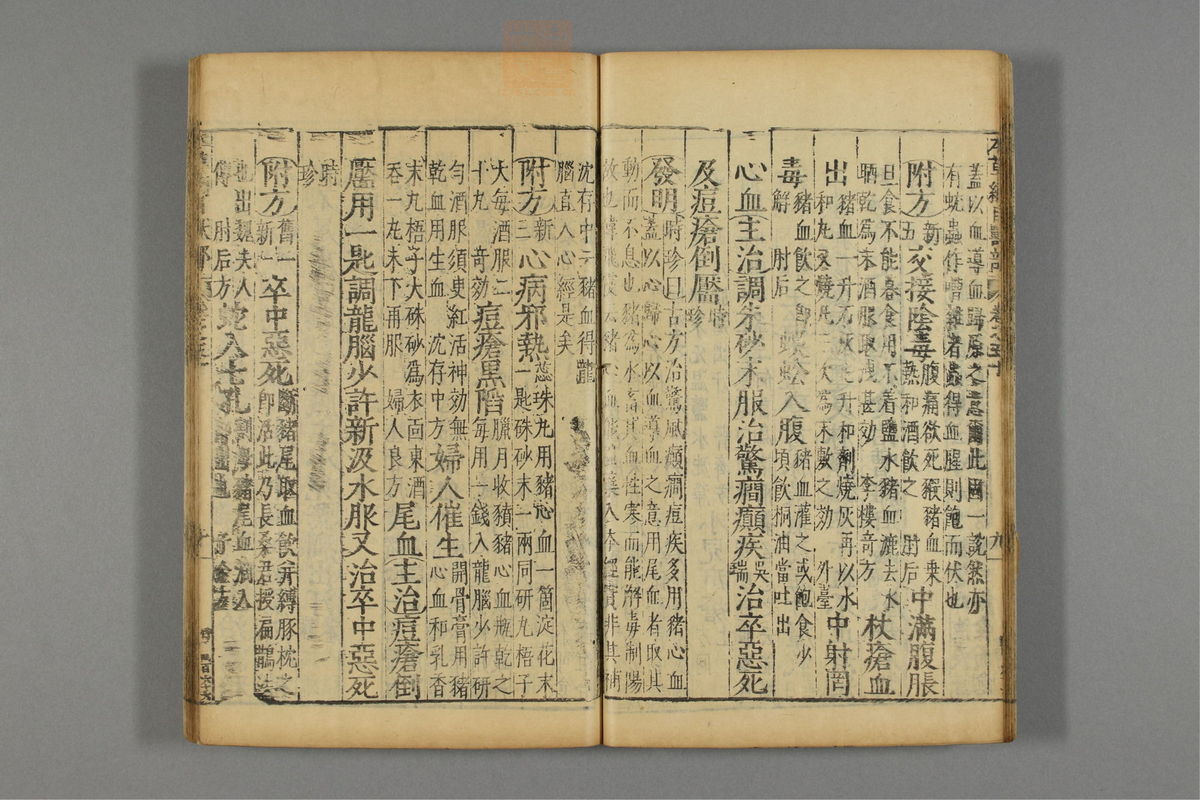 本草綱目獸部 卷之五十
蓋以血導血歸原之意爾此固一說然亦
有蚘蟲作嘈雜者蟲得血腥則飽而伏也
附方新五交接陰毒腹痛欲死豭豬血乗熱和酒飲之 肘后中滿腹脹
旦食不能暮食用不着鹽水豬血漉去水
晒乾爲末酒服取洩甚効 李樓奇方杖瘡血
出豬血一升石灰七升和劑燒灰再以水
和丸又燒凡三次爲末敷之効 外臺中射罔
毒豬血飲之即解 肘后蜈蚣入腹豬血灌之或飽食少
頃飲桐油當吐出
心血主治調朱砂末服治驚癇癲疾吳瑞治卒惡死
及痘瘡倒靨時珍
發明時珍曰古方治驚風癲癇痘疾多用豬心血
蓋以心歸心以血導血之意用尾血者取其
動而不息也豬爲水畜其血性寒而能解毒制陽
故也
沈存中云豬血得龍
腦直入心經是矣
附方新三心病邪熱蕊珠丸用豬心血一箇淀花末
一匙硃砂末一兩同研丸梧子
大每酒服二
十九 奇効痘瘡黑陷臘月收豶豬心血瓶乾之
每用一錢入龍腦少許研
勻酒服須臾紅活神効無
乾血用生血 沈存中方婦人催生開骨膏用豬
心血和乳香
末丸梧子大硃砂爲衣面東酒
吞一丸未下再服 婦人良方尾血主治痘瘡倒
靨用一匙調龍腦少許新汲水服又治卒中惡死
時珍
附方舊一新一卒中惡死斷豬尾取血飲并縛豚枕之
即活此乃長桑君授扁鵲法
也出魏夫人
傳 肘后方蛇入七孔割母豬尾血滴入